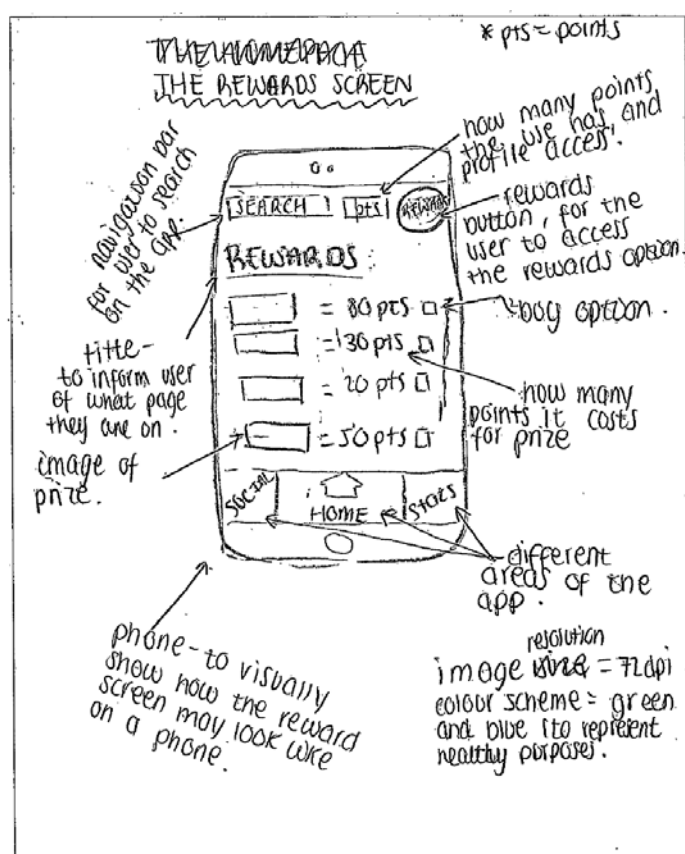 * pts = points
THE HOMEPAGE
THE REWARDS SCREEN
how many points
the use has and
profile access.
navigaison bar
for user to search
on the app.
SEARCH
pts
REWARDS
rewards
button, for the
user to access
the rewards option.
REWARDS
= 80 pts
buy option.
= 30 pts
title -
to inform user
of what page
they are on.
= 20 pts
how many
points it costs
for prize
= 50 pts
image of
prize.
SOCIAL
HOME
Stats
different
areas of the
app.
phone - to visually
show how the reward
screen may look like
on a phone.
resolution
image size = 72dpi
colour scheme = green
and blue (to represent
healthy purposes.